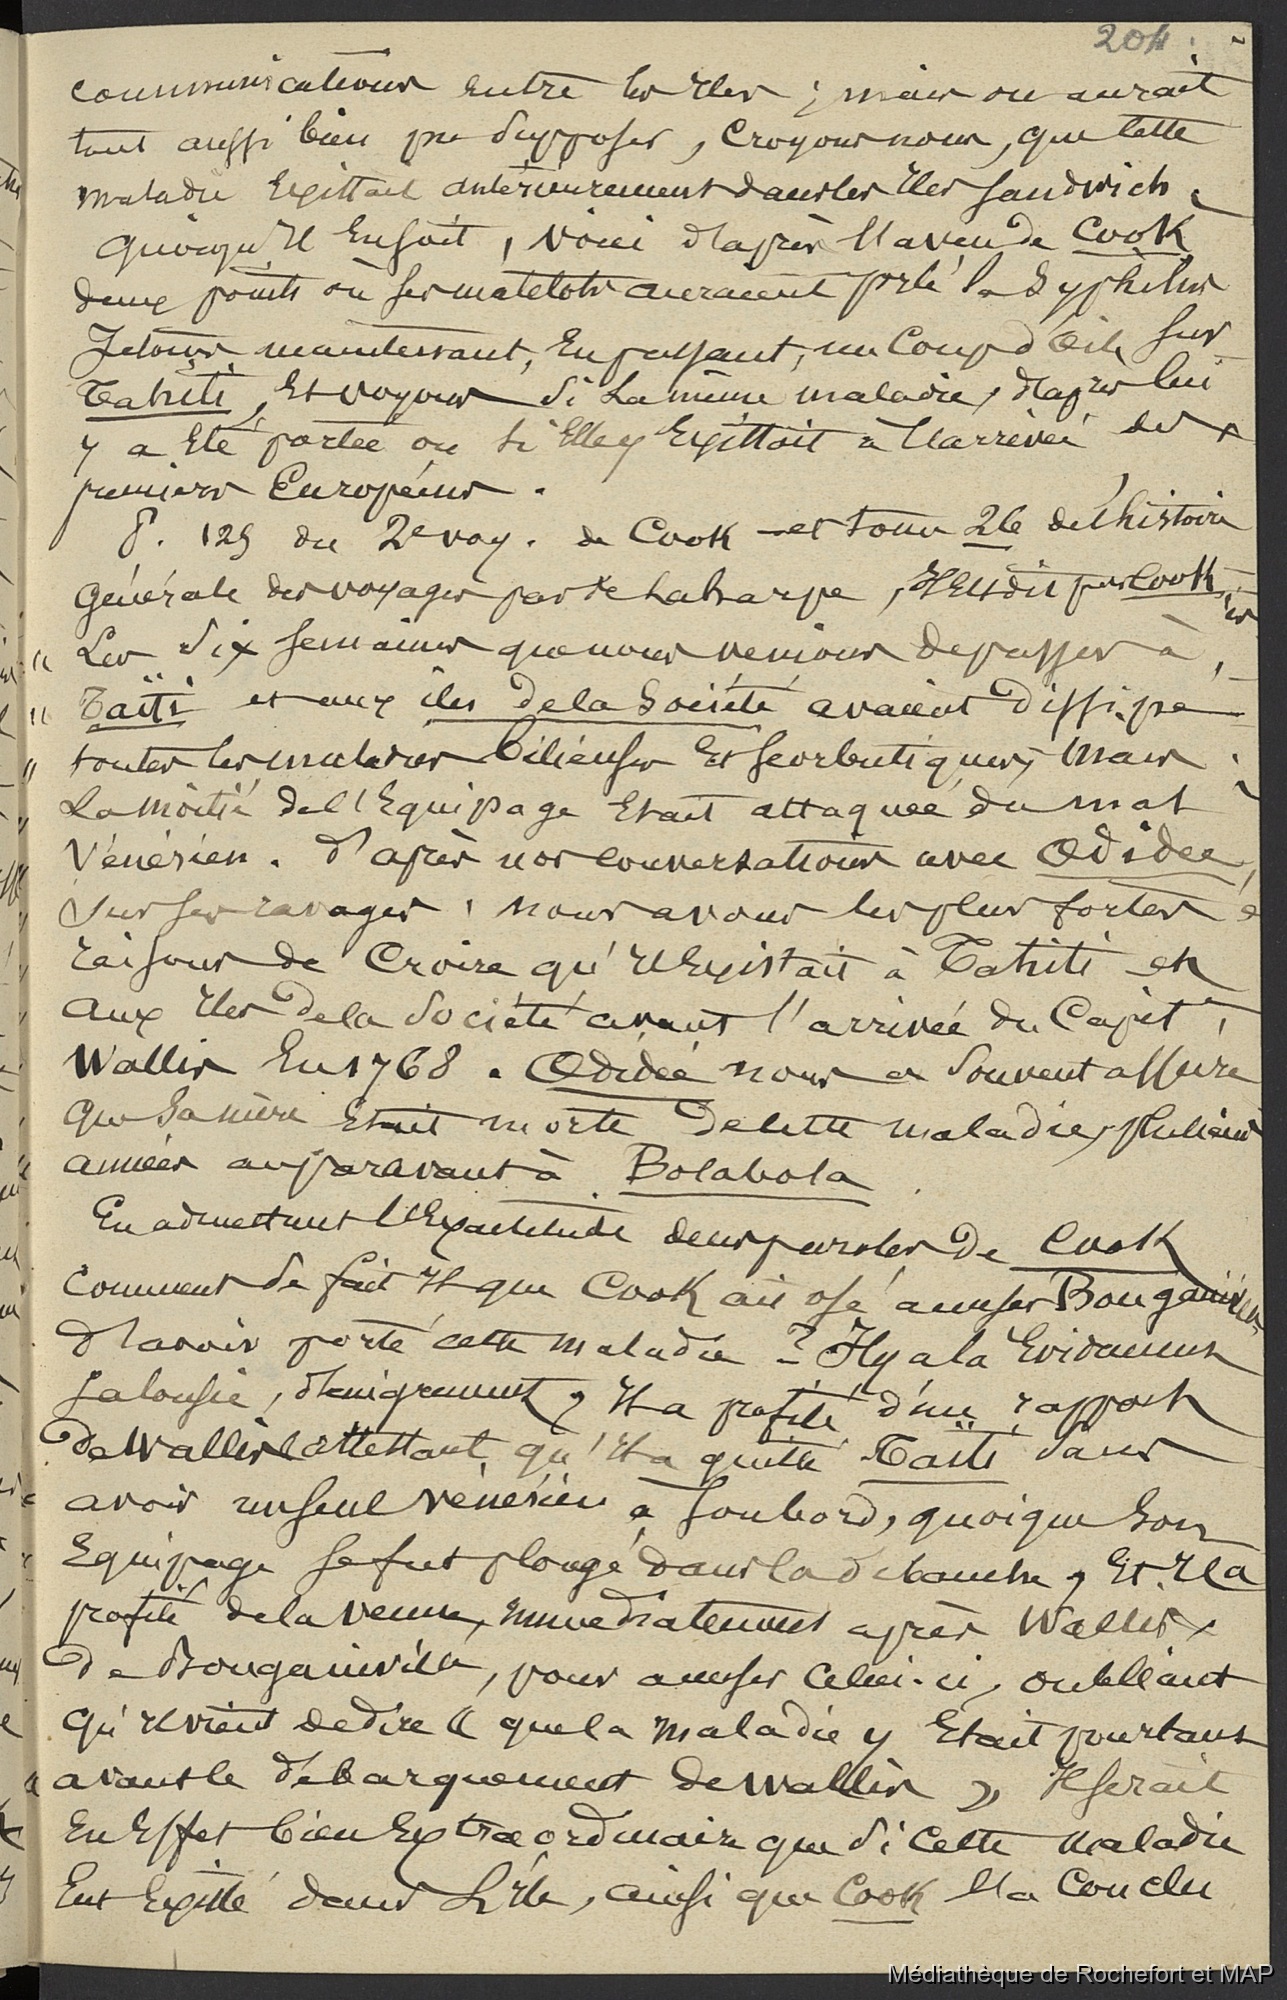 204
communications entre les Iles ; mais on aurait
tout aussi bien pu supposer, croyons nous, que cette
maladie existait antérieurement dans les Iles Sandwich.
Quoiqu'il en soit, voici d'après l'aveu de Cook
deux points où ses matelots auraient porté la Syphilis
Jetons maintenant, en passant, un coup d'œil sur
Tahiti, et voyons si la même maladie, d'après lui
y a été portée ou si elle y existait à l'arrivée des
premiers Européens.
P. 125 du 2e voy. de Cook et tome 26 de l'histoire
générale des voyages par de Laharpe, Il est dit par Cook,
"Les dix semaines que nous venions de passer à
" Taïti et aux îles de la Société avaient dissipé
" toutes les maladies bilieuses et scorbutiques, mais
la moitié de l'Equipage était attaquée du mal
Vénérien. D'après nos conversations avec Œdidée,
sur ses ravages, nous avons les plus fortes
raisons de croire qu'il existait à Tahiti et
aux Iles de la Société avant l'arrivée du Capit
Wallis en 1768. Œdidée nous a souvent assuré
que sa mère était morte de cette maladie, plusieurs
années auparavant à Bolabola
En admettant l'exactitude des paroles de Cook
comment se fait il que Cook ait osé accuser Bougainville
d'avoir porté cette maladie ? Il y a là évidemment
jalousie, dénigrement, Il a profité d'un rapport
de Wallis attestant qu'il a quitté Taïti sans
avoir un seul vénérien à son bord, quoique son
équipage se fut plongé dans la débauche, et il a
profité de la venue, immédiatement après Wallis,
de Bougainville, pour accuser celui-ci, oubliant
qu'il vient de dire " que la maladie y était pourtant
avant le débarquement de Wallis " Il serait
en effet bien extraordinaire que si cette maladie
eut existé dans l'île, ainsi que Cook l'a conclu
Médiathèque de Rochefort et MAP